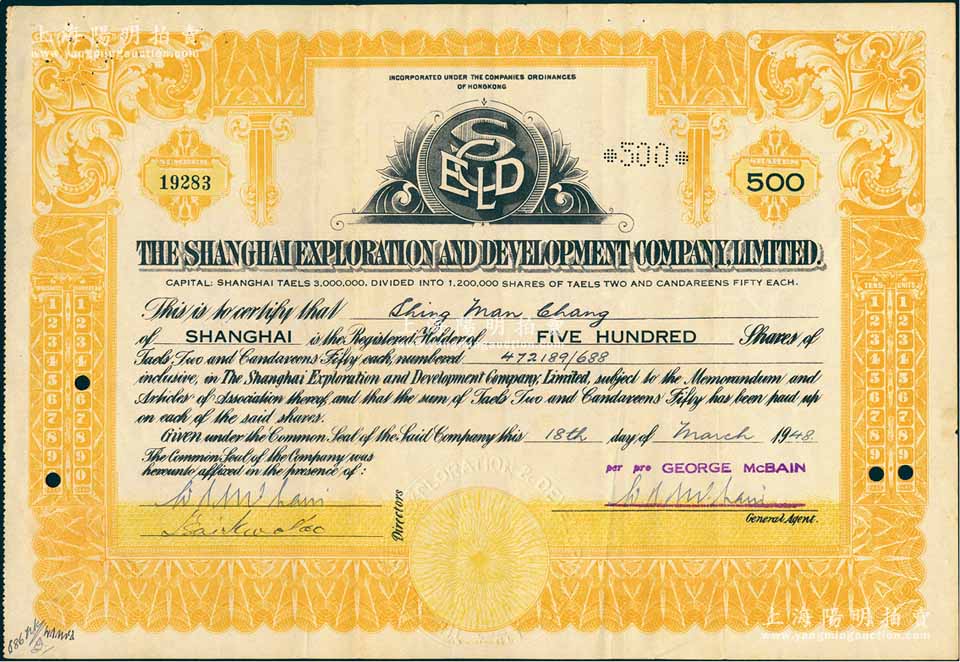 上海陽明拍賣
www.yangmingauction.com
INCORPORATED UNDER THE COMPANIES ORDINANCES
OF HONGKONG
SEDCL
*500*
Nº NUMBER
19283
SHARES
500
THE SHANGHAI EXPLORATION AND DEVELOPMENT COMPANY, LIMITED.
CAPITAL: SHANGHAI TAELS 3,000,000, DIVIDED INTO 1,200,000 SHARES OF TAELS TWO AND CANDAREENS FIFTY EACH.
This is to certify that Shing Man Chang
of SHANGHAI is the Registered Holder of FIVE HUNDRED Shares of
Taels Two and Candareens Fifty each, numbered 472189/688
inclusive, in The Shanghai Exploration and Development Company, Limited, subject to the Memorandum and
Articles of Association thereof, and that the sum of Taels Two and Candareens Fifty has been paid up
on each of the said shares.
Given under the Common Seal of the Said Company this 18th day of March 1948.
The Common Seal of the Company was
hereunto affixed in the presence of:
per pro GEORGE McBAIN
Directors
General Agent.
EXPLORATION & DE
TENS
UNITS
1 1
2 2
3 3
4 4
5 5
6 6
7 7
8 8
9 9
0 0
上海陽明拍賣
www.yangmingauction.com